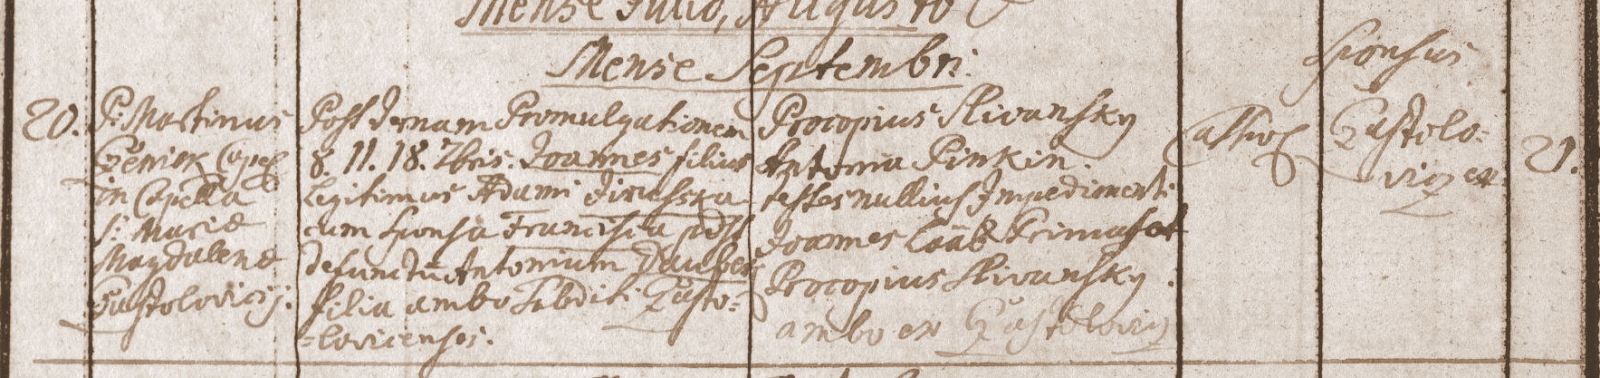 Mense Julio, Augusto
Mense Septembri.
20.
P. Martinus
Czeniek Capel
in Capella
S. Mariæ
Magdalenæ
Czastolovicij.
Post ternam Promulgationem
8. 11. 18. 7bris. Joannes filius
legitimus Adami
cum sponsa Francisca post
defunctum Antonium Dauber
filia ambo Subditi Czasto-
-lovicenses.
Procopius Slivansky
Antonia Pinkin.
testes nullius Impedimenti
Joannes Primas et
Procopius Slivansky.
ambo ex Czastolovitz
Cathol
Sponsus
Czastolo-
vitz
21.